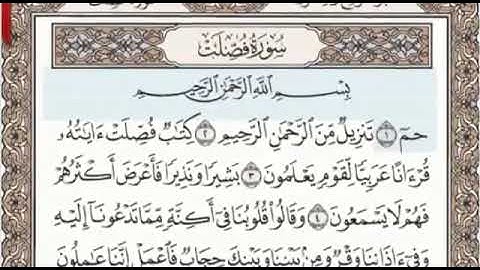 سُورَةُ فُصِّلَتْ
بِسْمِ اللَّهِ الرَّحْمَٰنِ الرَّحِيمِ
حمٓ ۝١ تَنزِيلٌ مِّنَ الرَّحْمَٰنِ الرَّحِيمِ ۝٢ كِتَابٌ فُصِّلَتْ ءَايَاتُهُۥ
قُرْءَانًا عَرَبِيًّا لِّقَوْمٍ يَعْلَمُونَ ۝٣ بَشِيرًا وَنَذِيرًا فَأَعْرَضَ أَكْثَرُهُمْ
فَهُمْ لَا يَسْمَعُونَ ۝٤ وَقَالُوا۟ قُلُوبُنَا فِىٓ أَكِنَّةٍ مِّمَّا تَدْعُونَآ إِلَيْهِ
وَفِىٓ ءَاذَانِنَا وَقْرٌ وَمِنۢ بَيْنِنَا وَبَيْنِكَ حِجَابٌ فَاعْمَلْ إِنَّنَا عَٰمِلُونَ